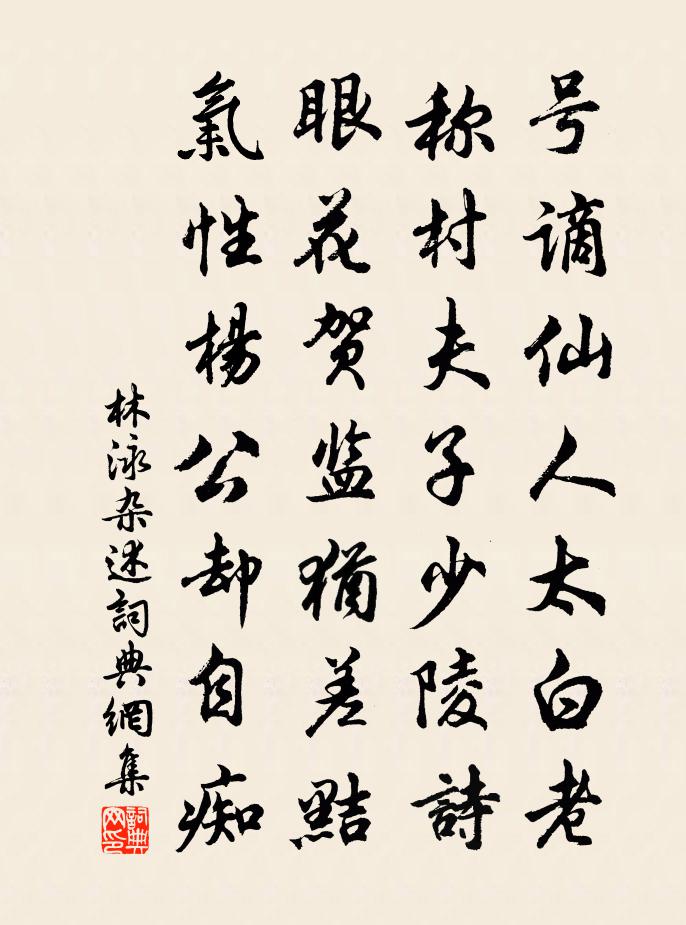 号谪仙人太白老
称村夫子少陵詩
眼花贺监猶差點
氣性楊公却自痴
林泳杂述詞典網集
詞典
网印